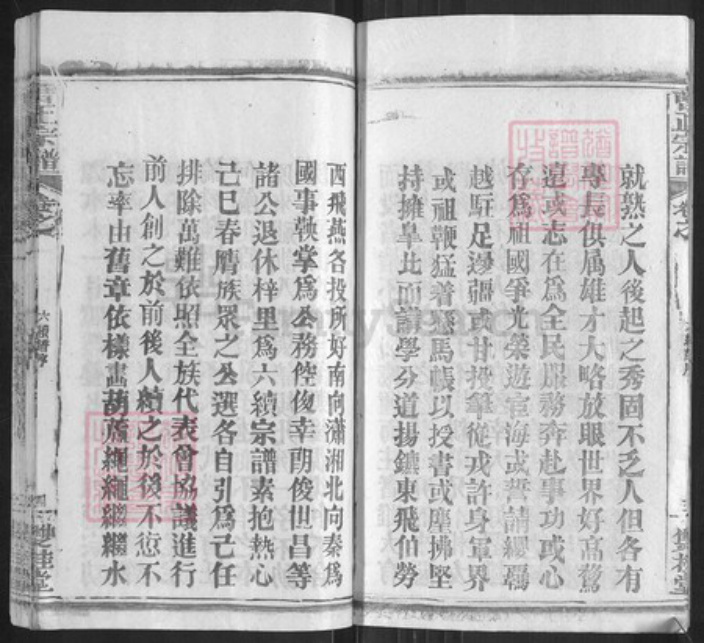 就熟之人後起之秀固不乏人但各有
專長俱属雄才大略放眼世界好高騖
遠或志在為全民服務奔赴事功或心
存為祖國爭光榮遊宦海或誓請纓羈
越駐足邊疆或甘投筆從戎許身軍界
或祖鞭猛着懸馬帳以授書或麈拂堅
持擁臯比而講學分道揚鑣東飛伯勞
西飛燕各投所好南向瀟湘北向秦為
國事鞅掌為公務倥傯幸萌俊世昌等
諸公退休梓里為六續宗譜素抱熱心
己巳春膺族眾之公選各自引為己任
排除萬難依照全族代表會協議進行
前人創之於前後人續之於後不愆不
忘率由舊章依樣畫葫蘆繩繩繼繼水
宗譜
卷之
六續譜序
雙桂堂